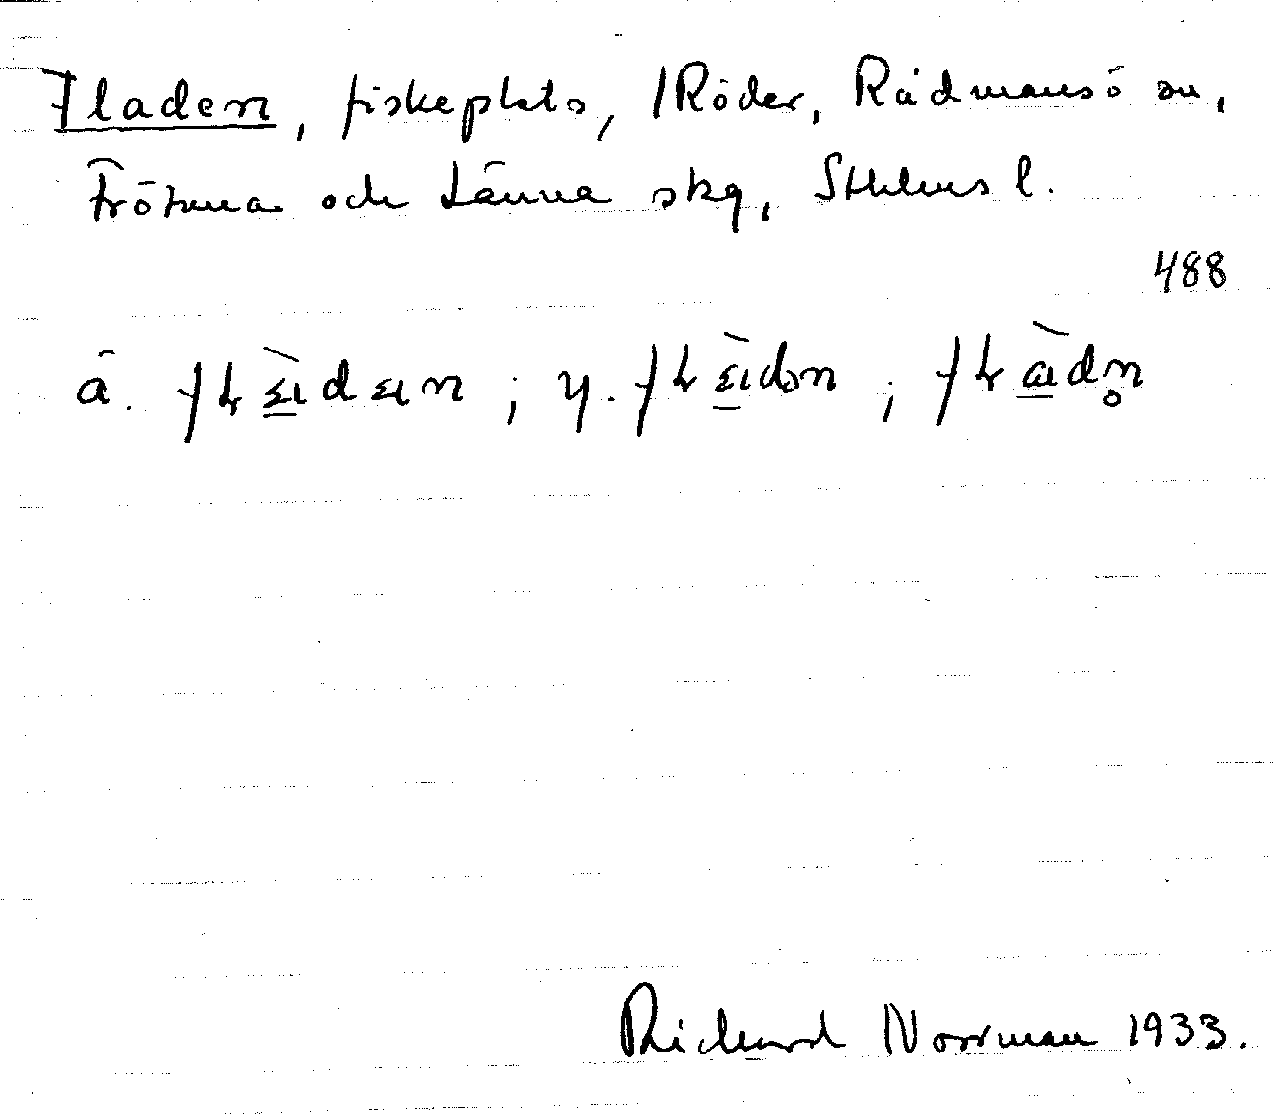 Fladen, fiskeplats, /Röder, Rådmansö sn,
Frötuna och Länna skg, Sthlms l.
488
ä. ; y. ;
Richard Norrman 1933.